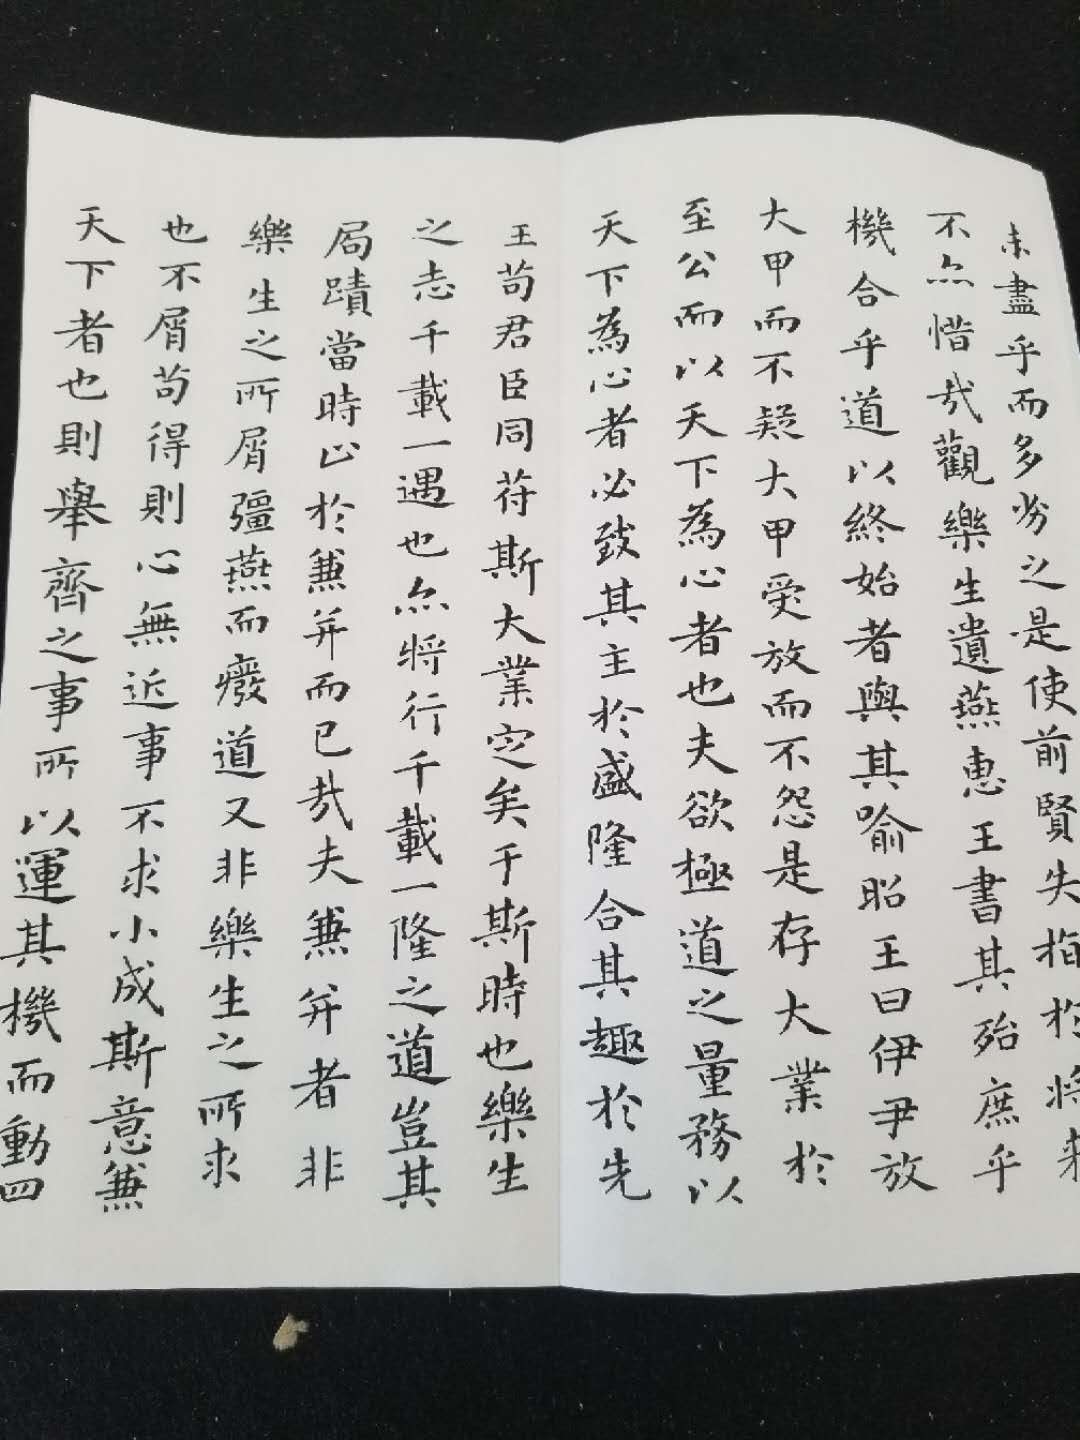 未盡乎而多劣之是使前賢失指於将来
不亦惜哉觀樂生遺燕惠王書其殆庶乎
機合乎道以終始者與其喻昭王曰伊尹放
大甲而不疑大甲受放而不怨是存大業於
至公而以天下為心者也夫欲極道之量務以
天下為心者必致其主於盛隆合其趣於先
王苟君臣同苻斯大業定矣于斯時也樂生
之志千載一遇也亦將行千載一隆之道豈其
局蹟當時止於兼并而已哉夫兼并者非
樂生之所屑彊燕而癈道又非樂生之所求
也不屑苟得則心無近事不求小成斯意兼
天下者也則舉齊之事所以運其機而動四